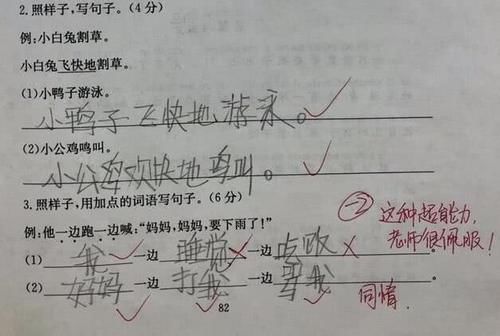 2.照样子,写句子。(4分)
例:小白兔割草。
小白兔飞快地割草。
(1)小鸭子游泳。
小鸭子飞快地游泳。
(2)小公鸡鸣叫。
小公鸡欢快地鸣叫。
3.照样子,用加点的词语写句子。(6分)
例:他一边跑一边喊:“妈妈,妈妈,要下雨了!”
(1) 我 一边 睡觉 一边 点改 。
(2) 妈妈 一边 打我 一边 骂我 。
-2 这种超能力,
老师很佩服!
同情.
82